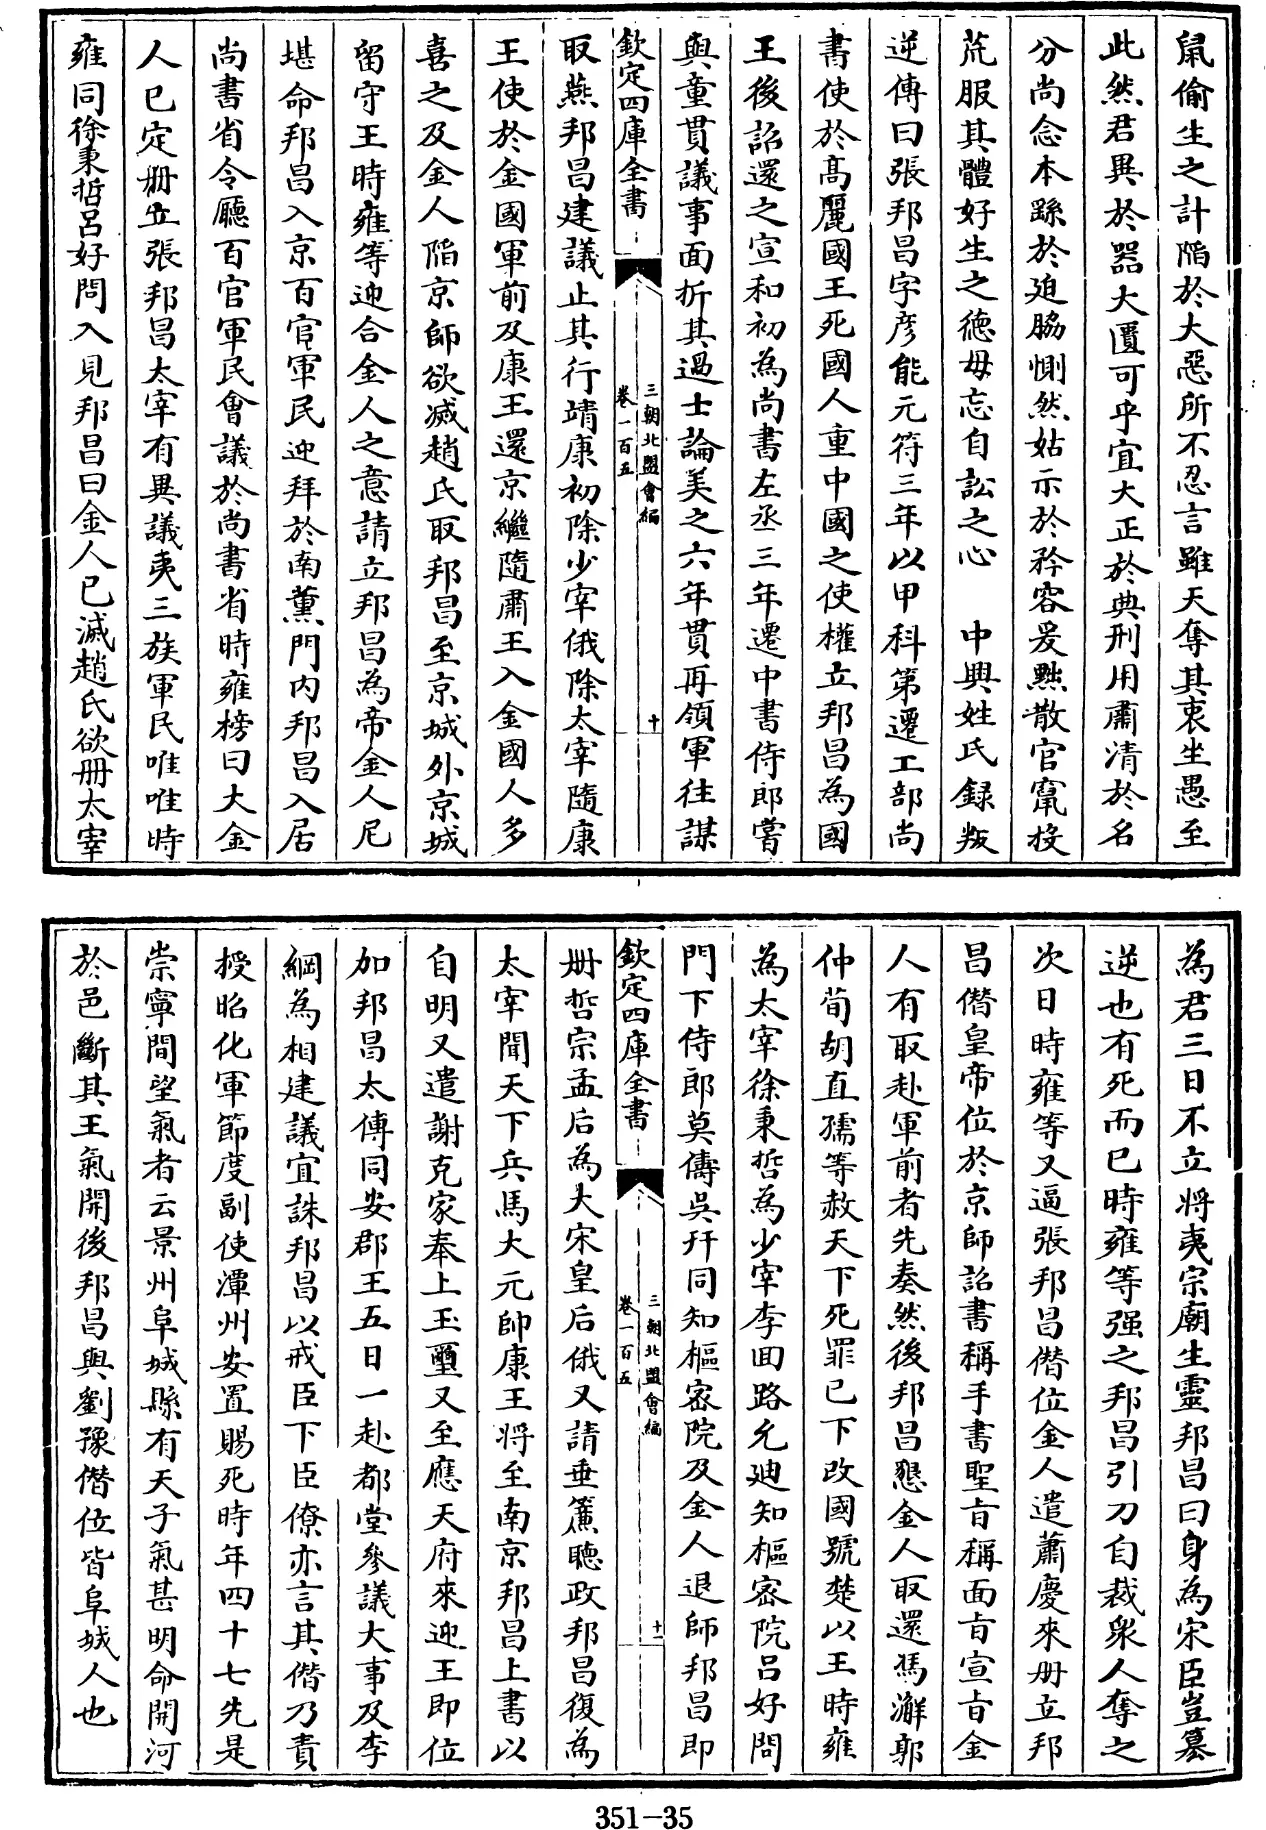 鼠偷生之計陷於大惡所不忍言雖天奪其衷坐愚至
此然君異於器大匱可乎宜大正於典刑用肅清於名
分尚念本繇於廹脇惻然姑示於矜容爰黜散官竄投
荒服其體好生之德毋忘自訟之心　中興姓氏録叛
逆傳曰張邦昌字彦能元符三年以甲科第遷工部尚
書使於高麗國王死國人重中國之使權立邦昌為國
王後詔還之宣和初為尚書左丞三年遷中書侍郎嘗
與童貫議事面折其過士論美之六年貫再領軍往謀
欽定四庫全書
三朝北盟會編
卷一百五
十
取燕邦昌建議止其行靖康初除少宰俄除太宰隨康
王使於金國軍前及康王還京繼隨肅王入金國人多
喜之及金人陷京師欲滅趙氏取邦昌至京城外京城
留守王時雍等迎合金人之意請立邦昌為帝金人尼
堪命邦昌入京百官軍民迎拜於南薫門内邦昌入居
尚書省令廳百官軍民會議於尚書省時雍榜曰大金
人已定册立張邦昌太宰有異議夷三族軍民唯唯時
雍同徐秉哲呂好問入見邦昌曰金人已滅趙氏欲册太宰
為君三日不立將夷宗廟生靈邦昌曰身為宋臣豈篡
逆也有死而已時雍等强之邦昌引刀自裁衆人奪之
次日時雍等又逼張邦昌僭位金人遣蕭慶來册立邦
昌僭皇帝位於京師詔書稱手書聖㫖稱面㫖宣㫖金
人有取赴軍前者先奏然後邦昌懇金人取還馮澥郭
仲荀胡直孺等赦天下死罪已下改國號楚以王時雍
為太宰徐秉哲為少宰李回路允廸知樞密院呂好問
門下侍郎莫儔吳幵同知樞密院及金人退師邦昌即
欽定四庫全書
三朝北盟會編
卷一百五
十一
册哲宗孟后為大宋皇后俄又請垂簾聽政邦昌復為
太宰聞天下兵馬大元帥康王將至南京邦昌上書以
自明又遣謝克家奉上玉璽又至應天府來迎王即位
加邦昌太傅同安郡王五日一赴都堂參議大事及李
綱為相建議宜誅邦昌以戒臣下臣僚亦言其僭乃責
授昭化軍節度副使潭州安置賜死時年四十七先是
崇寧間望氣者云景州阜城縣有天子氣甚明命開河
於邑斷其王氣開後邦昌與劉豫僭位皆阜城人也
351-35